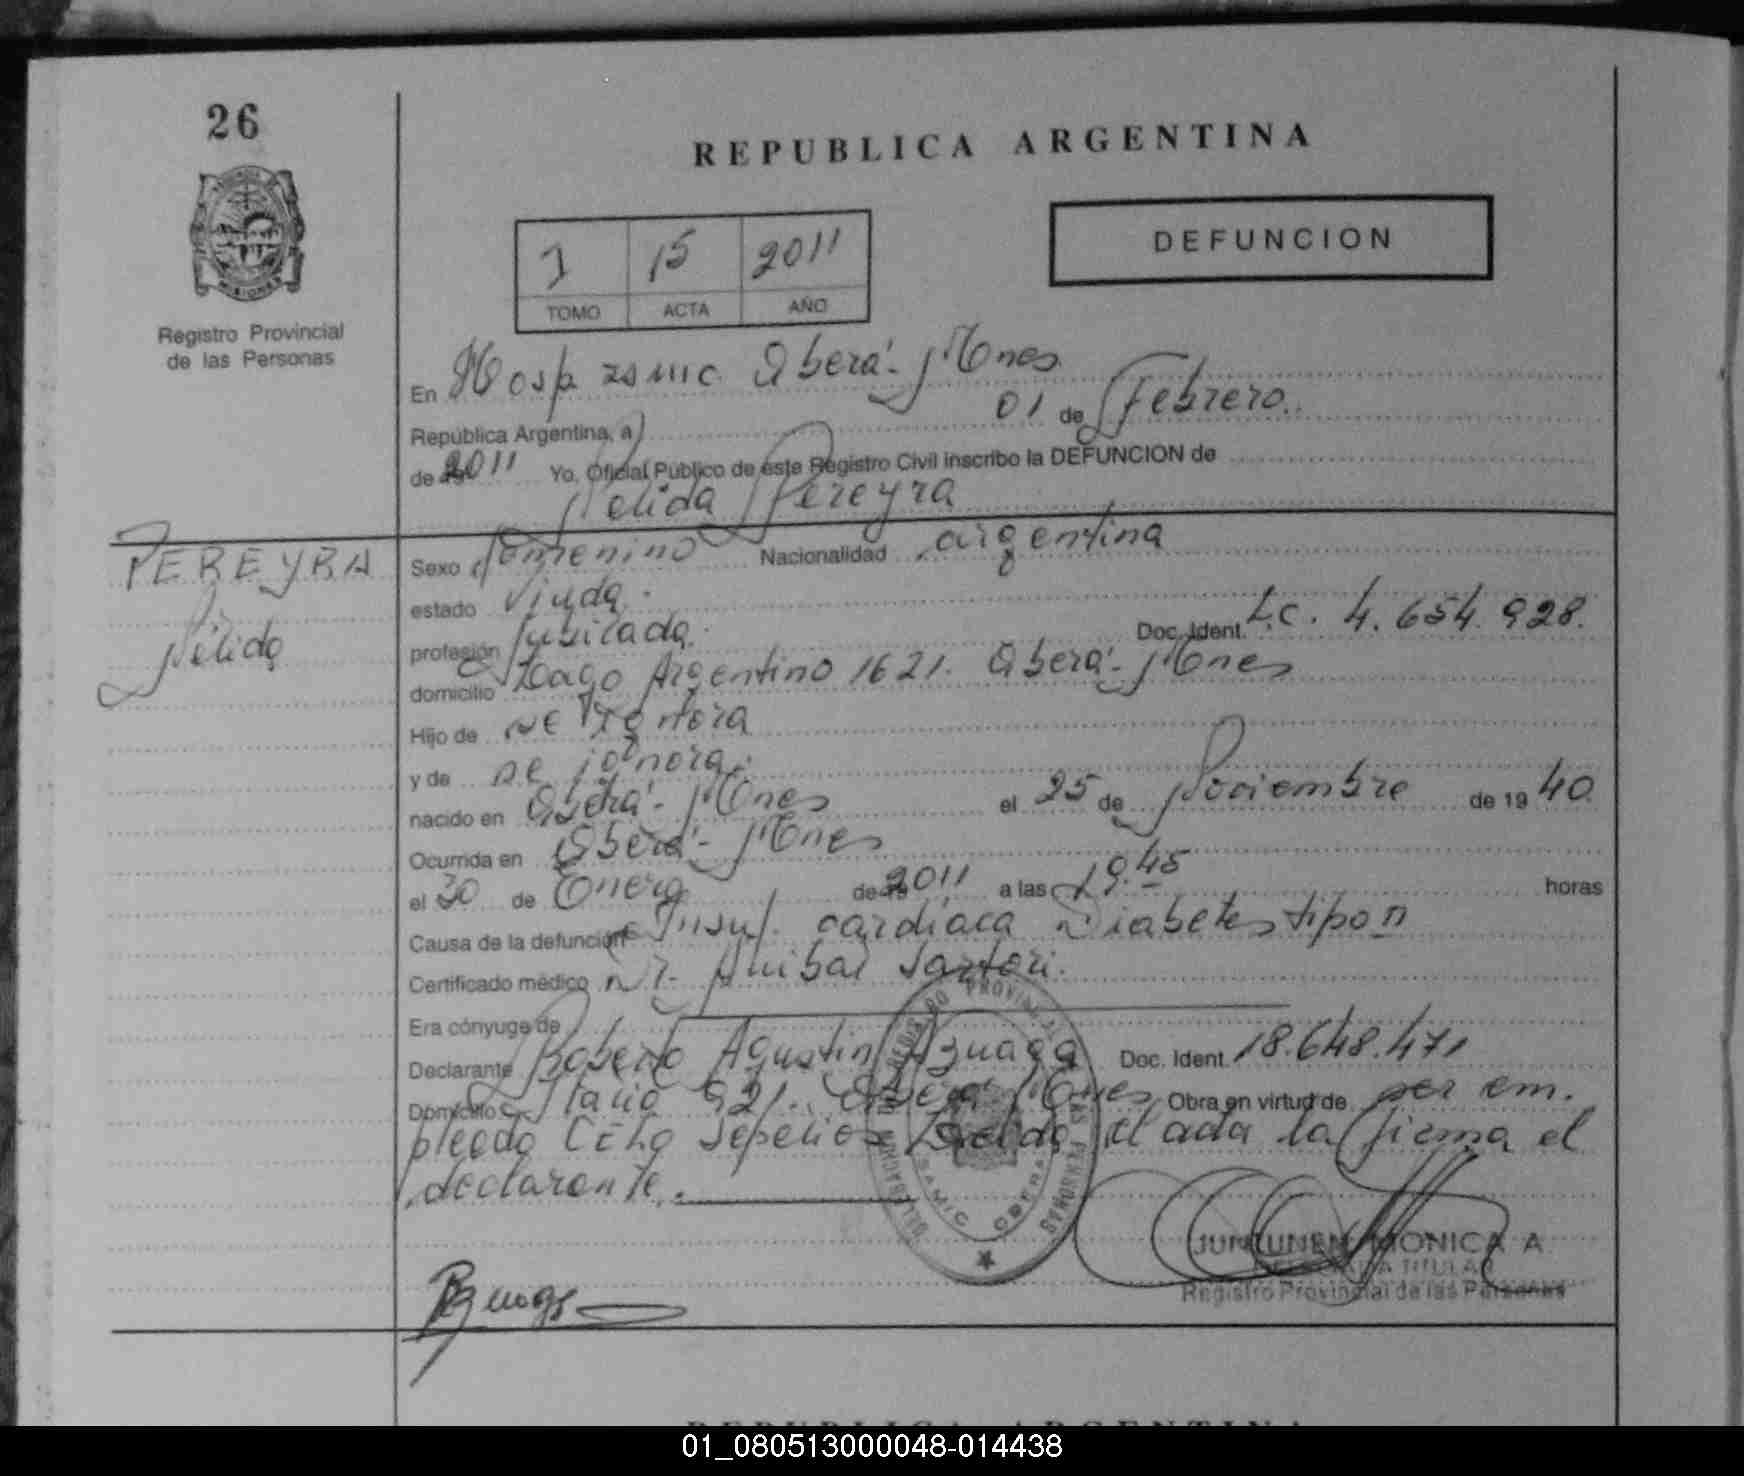 26
REPUBLICA ARGENTINA
DEFUNCION
1 15 2011
TOMO ACTA AÑO
MISIONES
Registro Provincial
de las Personas
En Hosp. samic. Oberá - Mnes
República Argentina, a 01 de Febrero
de 19 2011 Yo, Oficial Público de este Registro Civil inscribo la DEFUNCION de
Nelida Pereyra
PEREYRA
Nélida
Sexo femenino Nacionalidad argentina
estado Viuda.
profesión Jubilada. Doc. Ident. L.C. 4.654.928.
domicilio Lago Argentino 1621. Oberá - Mnes
Hijo de se ignora
y de se ignora.
nacido en Oberá - Mnes el 25 de Noviembre de 19 40.
Ocurrida en Oberá - Mnes
el 30 de Enero de 19 2011 a las 19.45 horas
Causa de la defunción Insuf. cardíaca Diabetes tipo II
Certificado médico Dr. Anibal Sartori.
Era cónyuge de
Declarante Roberto Agustin Azuaga Doc. Ident. 18.648.471
Domicilio 921. Oberá Mnes Obra en virtud de ser em.
pleado Sepelios Leida la firma el
declarante.
DELEGACION REGISTRO PROVINCIAL DE LAS PERSONAS
SAMIC OBERA
Azuaga
JUNCUNEN MONICA A
DELEGADA TITULAR
Registro Provincial de las Personas
REPUBLICA ARGENTINA
01_080513000048-014438